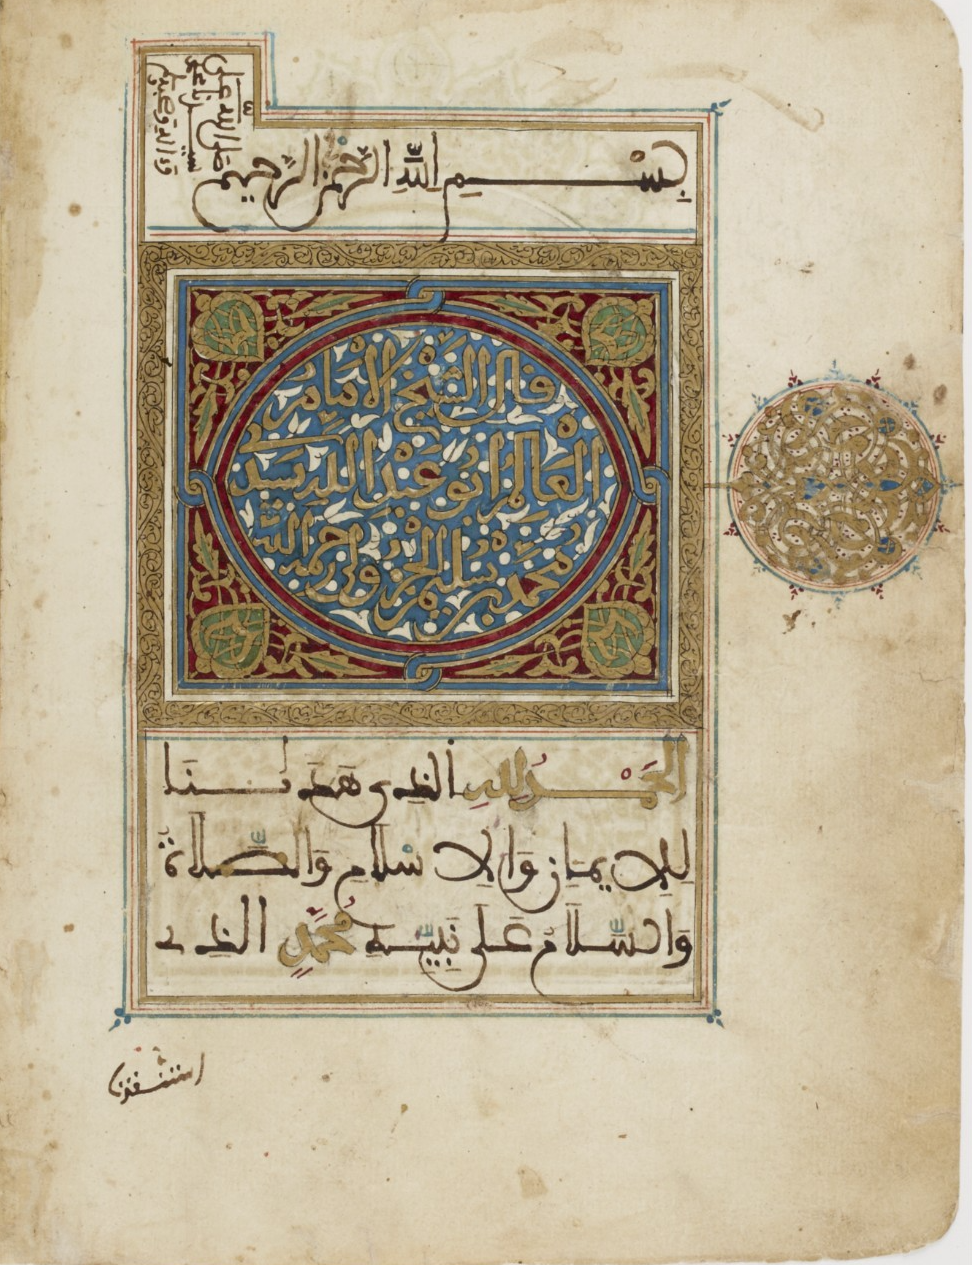 بِسْمِ اللَّهِ الرَّحْمٰنِ الرَّحِيمِ
صلى الله على
سيدنا
وءاله وصحبه
قال الشيخ الامام
العالم ابو عبد الله سيدى
محمد بن سليمن الجزولى رحمه الله
الْحَمْدُ لِلهِ الذِى هَدَىٰنَا
لِلِايمَانِ وَالِاسْلَامِ وَالصَّلَاةُ
وَالسَّلَامُ عَلَى نَبِيِّهِ مُحَمَّدٍ الذِى
استنقذنا